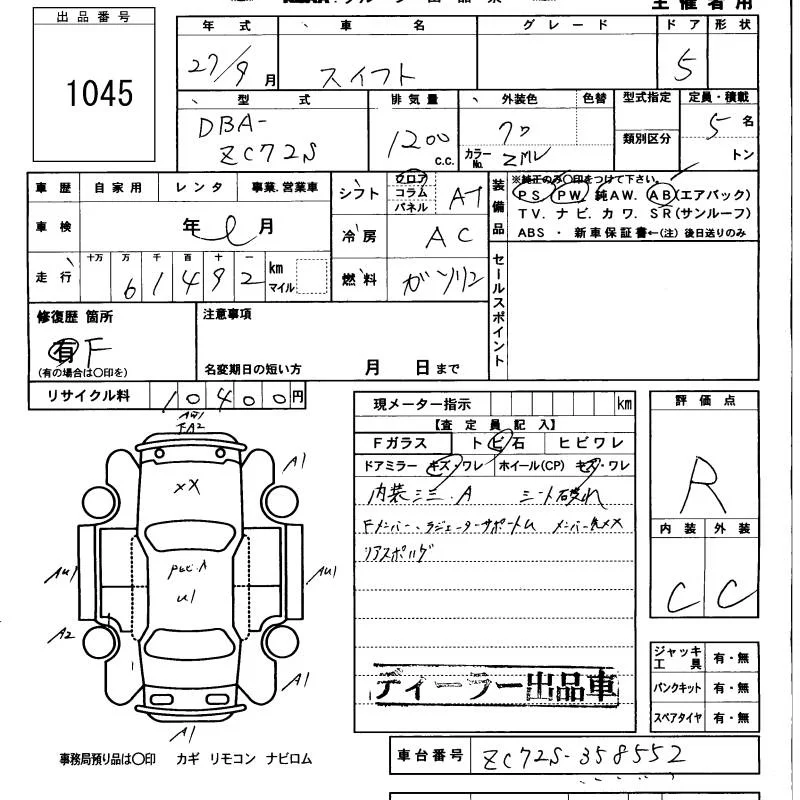 出品番号
1045
主催者用
年式 車名 グレード ドア 形状
27/9月 スイフト 5
型式 排気量 外装色 色替 型式指定 定員・積載
DBA-
ZC72S
1200 c.c.
クロ
カラーNo. ZMV
類別区分
5名
トン
車歴 自家用 レンタ 事業.営業車
車検 年 月
走行 十万 万 千 百 十 一
61492 km
マイル
シフト フロア コラム パネル AT
冷房 AC
燃料 ガソリン
装備品
※純正のみ〇印をつけて下さい。
PS PW. 純AW. AB(エアバック)
TV. ナビ. カワ. SR(サンルーフ)
ABS ・ 新車保証書←(注) 後日送りのみ
セールスポイント
修復歴 箇所
有 F
(有の場合は〇印を)
注意事項
名変期日の短い方 月 日まで
リサイクル料 10400円
現メーター指示 km
【査定員記入】
Fガラス トビ石 ヒビワレ
ドアミラー キズ・ワレ ホイール(CP) キズ・ワレ
内装 シミ.A シート破れ
Fメンバー、ラジエーターサポートU メンバー先メX
リアスポイラグ
ディーラー出品車
評価点
R
内装 外装
C C
AW1
FA2
A1
XX
AU1
AU1
U1
A2
A1
A1
ジャッキ工具 有・無
パンクキット 有・無
スペアタイヤ 有・無
事務局預り品は〇印 カギ リモコン ナビロム
車台番号 ZC72S-358552